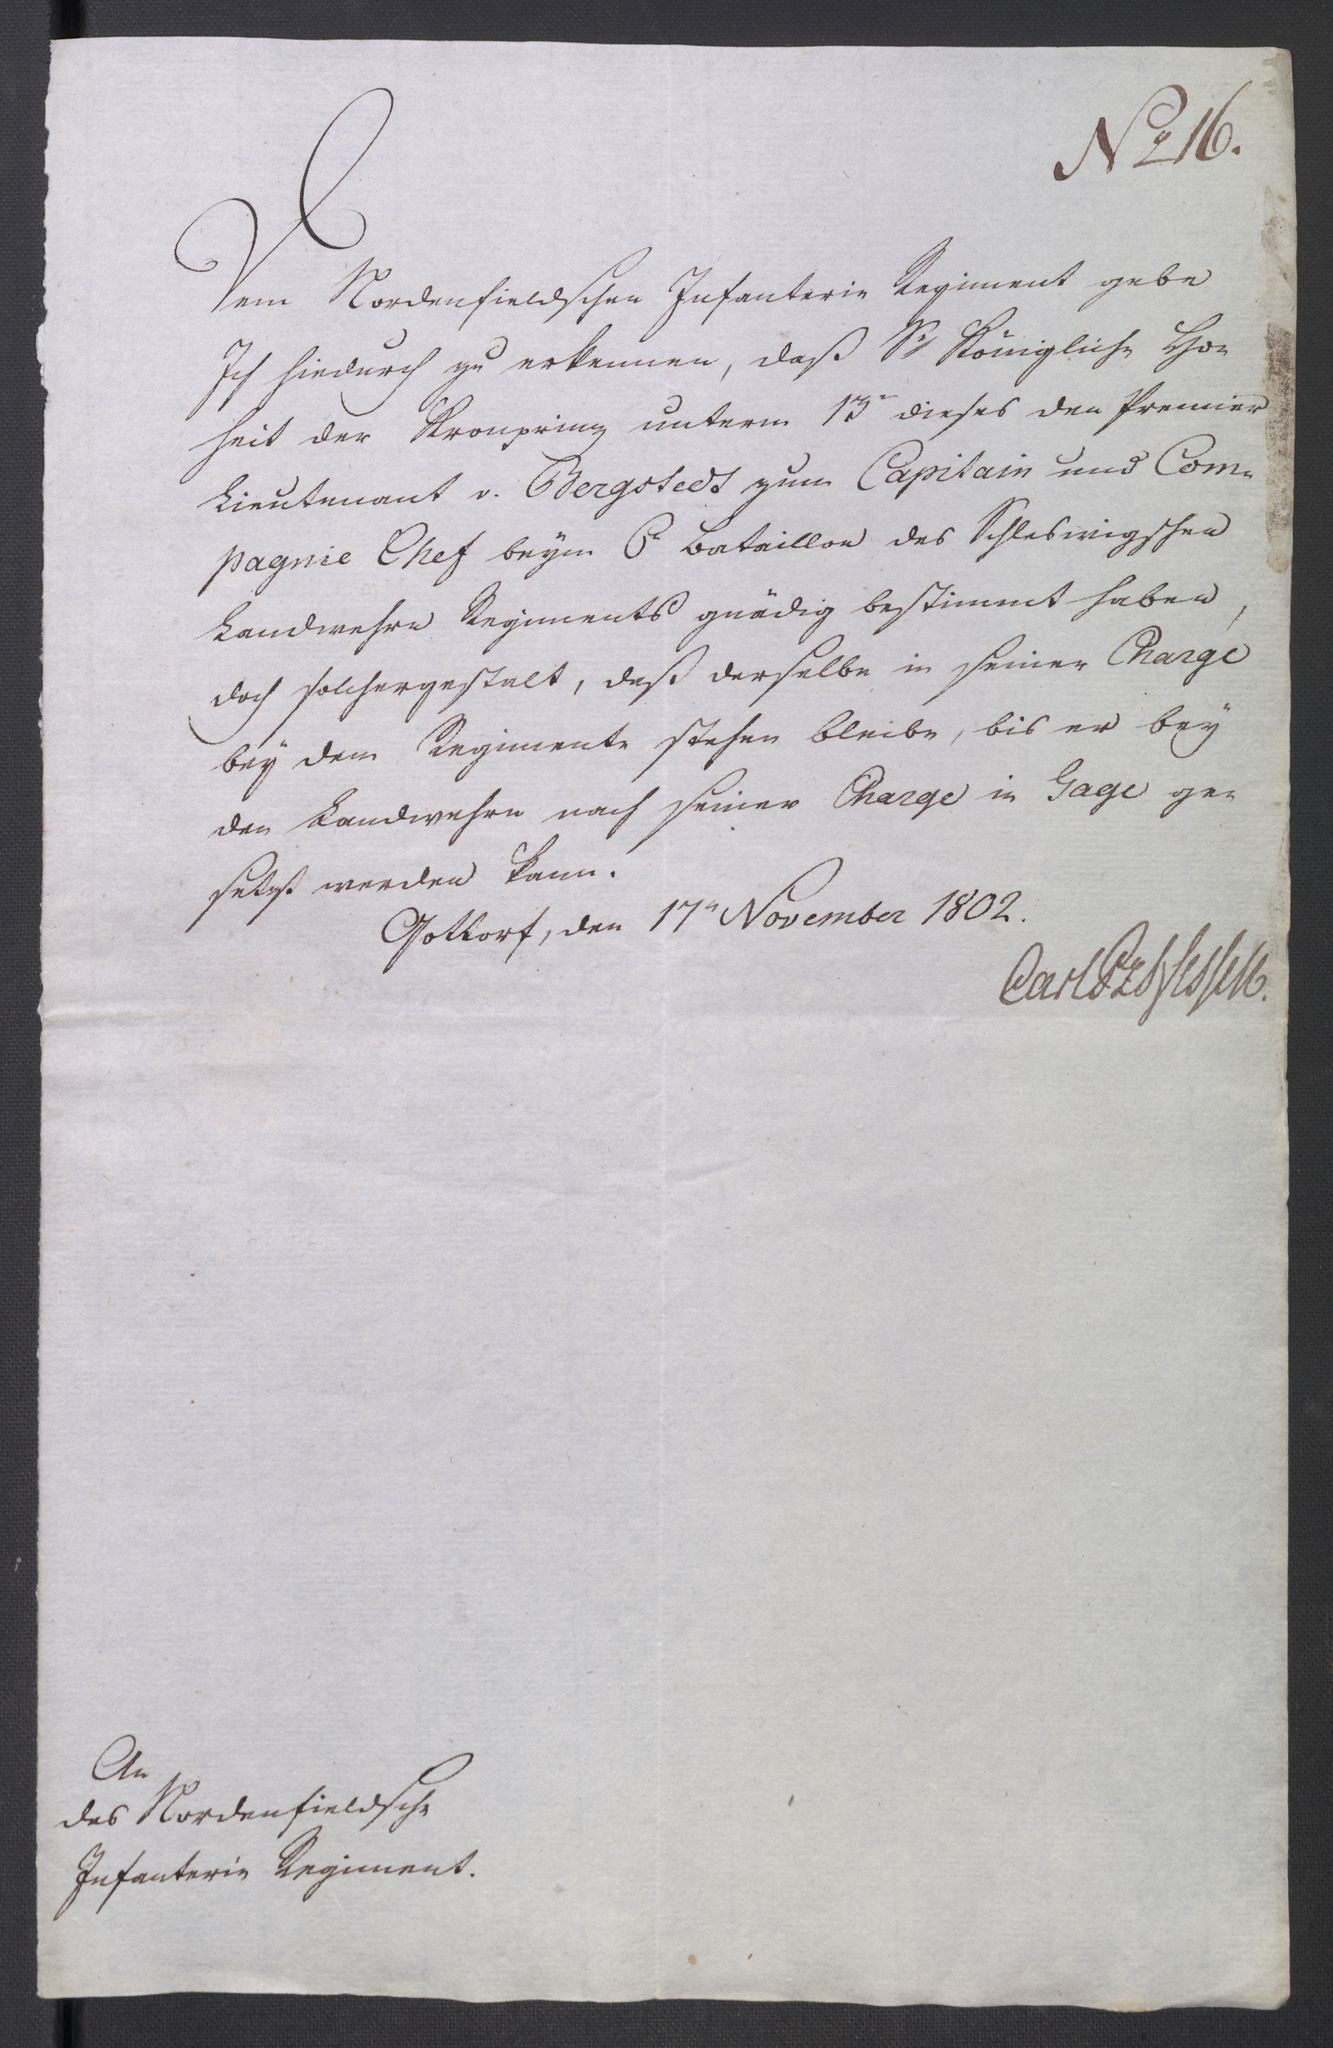 No 16.
Dem Nordenfieldschen Infanterie Regiment gebe
Ich hiedurch zu erkennen, daß Sr Königliche Ho-
heit der Kronprinz unterm 13n dieses den Premier
Lieutenant v. Bergstedt zum Capitain und Com-
pagnie Chef beym 6t Bataillon des Schleswigschen
Landwehre Regiments gnädig bestimmt haben,
doch solchergestalt, daß derselbe in seiner Charge
bey dem Regimente stehen bleibe, bis er bey
der Landwehre nach seiner Charge in Gage ge-
setzt werden kann.
Gottorf, den 17n November 1802.
Carl Pz Hessen.
An
das Nordenfieldsche
Infanterie Regiment.